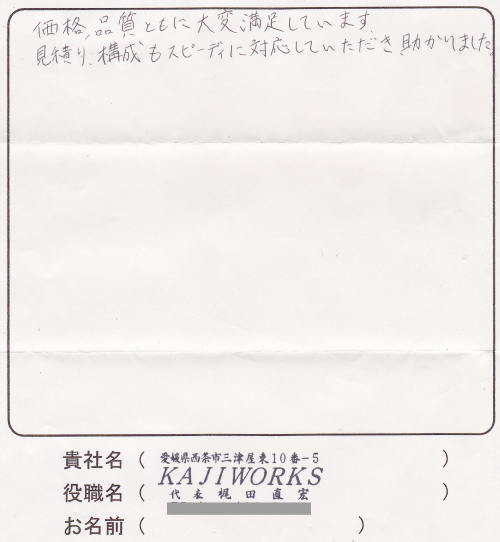 価格、品質ともに大変満足しています。
見積り、構成もスピーディに対応していただき、助かりました。
貴社名 ( 愛媛県西条市三津屋東10番-5 )
KAJIWORKS
役職名 ( 代表 梶田直宏 )
お名前 ( )